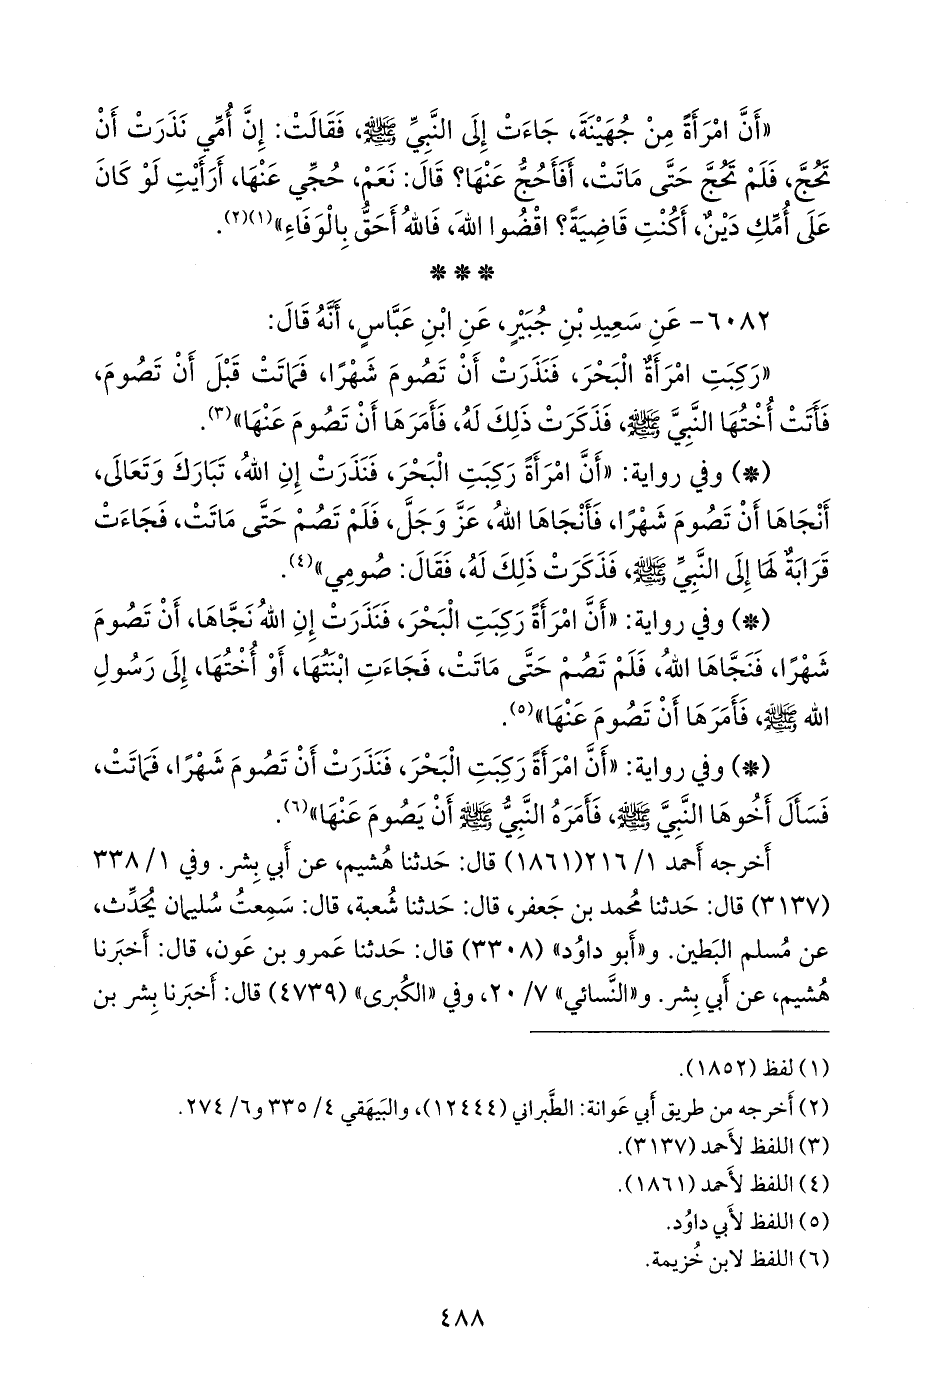 «أَنَّ امْرَأَةً مِنْ جُهَيْنَةَ، جَاءَتْ إِلَى النَّبِيِّ ﷺ، فَقَالَتْ: إِنَّ أُمِّي نَذَرَتْ أَنْ
تَحُجَّ، فَلَمْ تَحُجَّ حَتَّى مَاتَتْ، أَفَأَحُجُّ عَنْهَا؟ قَالَ: نَعَمْ، حُجِّي عَنْهَا، أَرَأَيْتِ لَوْ كَانَ
عَلَى أُمِّكِ دَيْنٌ، أَكُنْتِ قَاضِيَةً؟ اقْضُوا اللهَ، فَاللهُ أَحَقُّ بِالْوَفَاءِ»(١)(٢).
***
٦٠٨٢- عَنِ سَعِيدِ بْنِ جُبَيْرٍ، عَنِ ابْنِ عَبَّاسٍ، أَنَّهُ قَالَ:
«رَكِبَتِ امْرَأَةٌ الْبَحْرَ، فَنَذَرَتْ أَنْ تَصُومَ شَهْرًا، فَمَاتَتْ قَبْلَ أَنْ تَصُومَ،
فَأَتَتْ أُخْتُهَا النَّبِيَّ ﷺ، فَذَكَرَتْ ذَلِكَ لَهُ، فَأَمَرَهَا أَنْ تَصُومَ عَنْهَا»(٣).
(*) وفي رواية: «أَنَّ امْرَأَةً رَكِبَتِ الْبَحْرَ، فَنَذَرَتْ إِنِ اللهُ، تَبَارَكَ وَتَعَالَى،
أَنْجَاهَا أَنْ تَصُومَ شَهْرًا، فَأَنْجَاهَا اللهُ، عَزَّ وَجَلَّ، فَلَمْ تَصُمْ حَتَّى مَاتَتْ، فَجَاءَتْ
قَرَابَةٌ لَهَا إِلَى النَّبِيِّ ﷺ، فَذَكَرَتْ ذَلِكَ لَهُ، فَقَالَ: صُومِي»(٤).
(*) وفي رواية: «أَنَّ امْرَأَةً رَكِبَتِ الْبَحْرَ، فَنَذَرَتْ إِنِ اللهُ نَجَّاهَا، أَنْ تَصُومَ
شَهْرًا، فَنَجَّاهَا اللهُ، فَلَمْ تَصُمْ حَتَّى مَاتَتْ، فَجَاءَتِ ابْنَتُهَا، أَوْ أُخْتُهَا، إِلَى رَسُولِ
الله ﷺ، فَأَمَرَهَا أَنْ تَصُومَ عَنْهَا»(٥).
(*) وفي رواية: «أَنَّ امْرَأَةً رَكِبَتِ الْبَحْرَ، فَنَذَرَتْ أَنْ تَصُومَ شَهْرًا، فَمَاتَتْ،
فَسَأَلَ أَخُوهَا النَّبِيَّ ﷺ، فَأَمَرَهُ النَّبِيُّ ﷺ أَنْ يَصُومَ عَنْهَا»(٦).
أَخرجه أَحمد ١/ ٢١٦(١٨٦١) قال: حَدثنا هُشيم، عن أَبي بِشر. وفي ١/ ٣٣٨
(٣١٣٧) قال: حَدثنا مُحمد بن جَعفر، قال: حَدثنا شُعبة، قال: سَمِعتُ سُليمان يُحَدِّث،
عن مُسلم البَطين. و«أَبو داوُد» (٣٣٠٨) قال: حَدثنا عَمرو بن عَون، قال: أَخبَرنا
هُشيم، عن أَبي بِشر. و«النَّسائي» ٧/ ٢٠، وفي «الكُبرى» (٤٧٣٩) قال: أَخبَرنا بِشر بن
(١) لفظ (١٨٥٢).
(٢) أَخرجه من طريق أَبي عَوانة: الطَّبراني (١٢٤٤٤)، والبَيهَقي ٤/ ٣٣٥ و٦/ ٢٧٤.
(٣) اللفظ لأَحمد (٣١٣٧).
(٤) اللفظ لأَحمد (١٨٦١).
(٥) اللفظ لأَبي داوُد.
(٦) اللفظ لابن خُزيمة.
٤٨٨